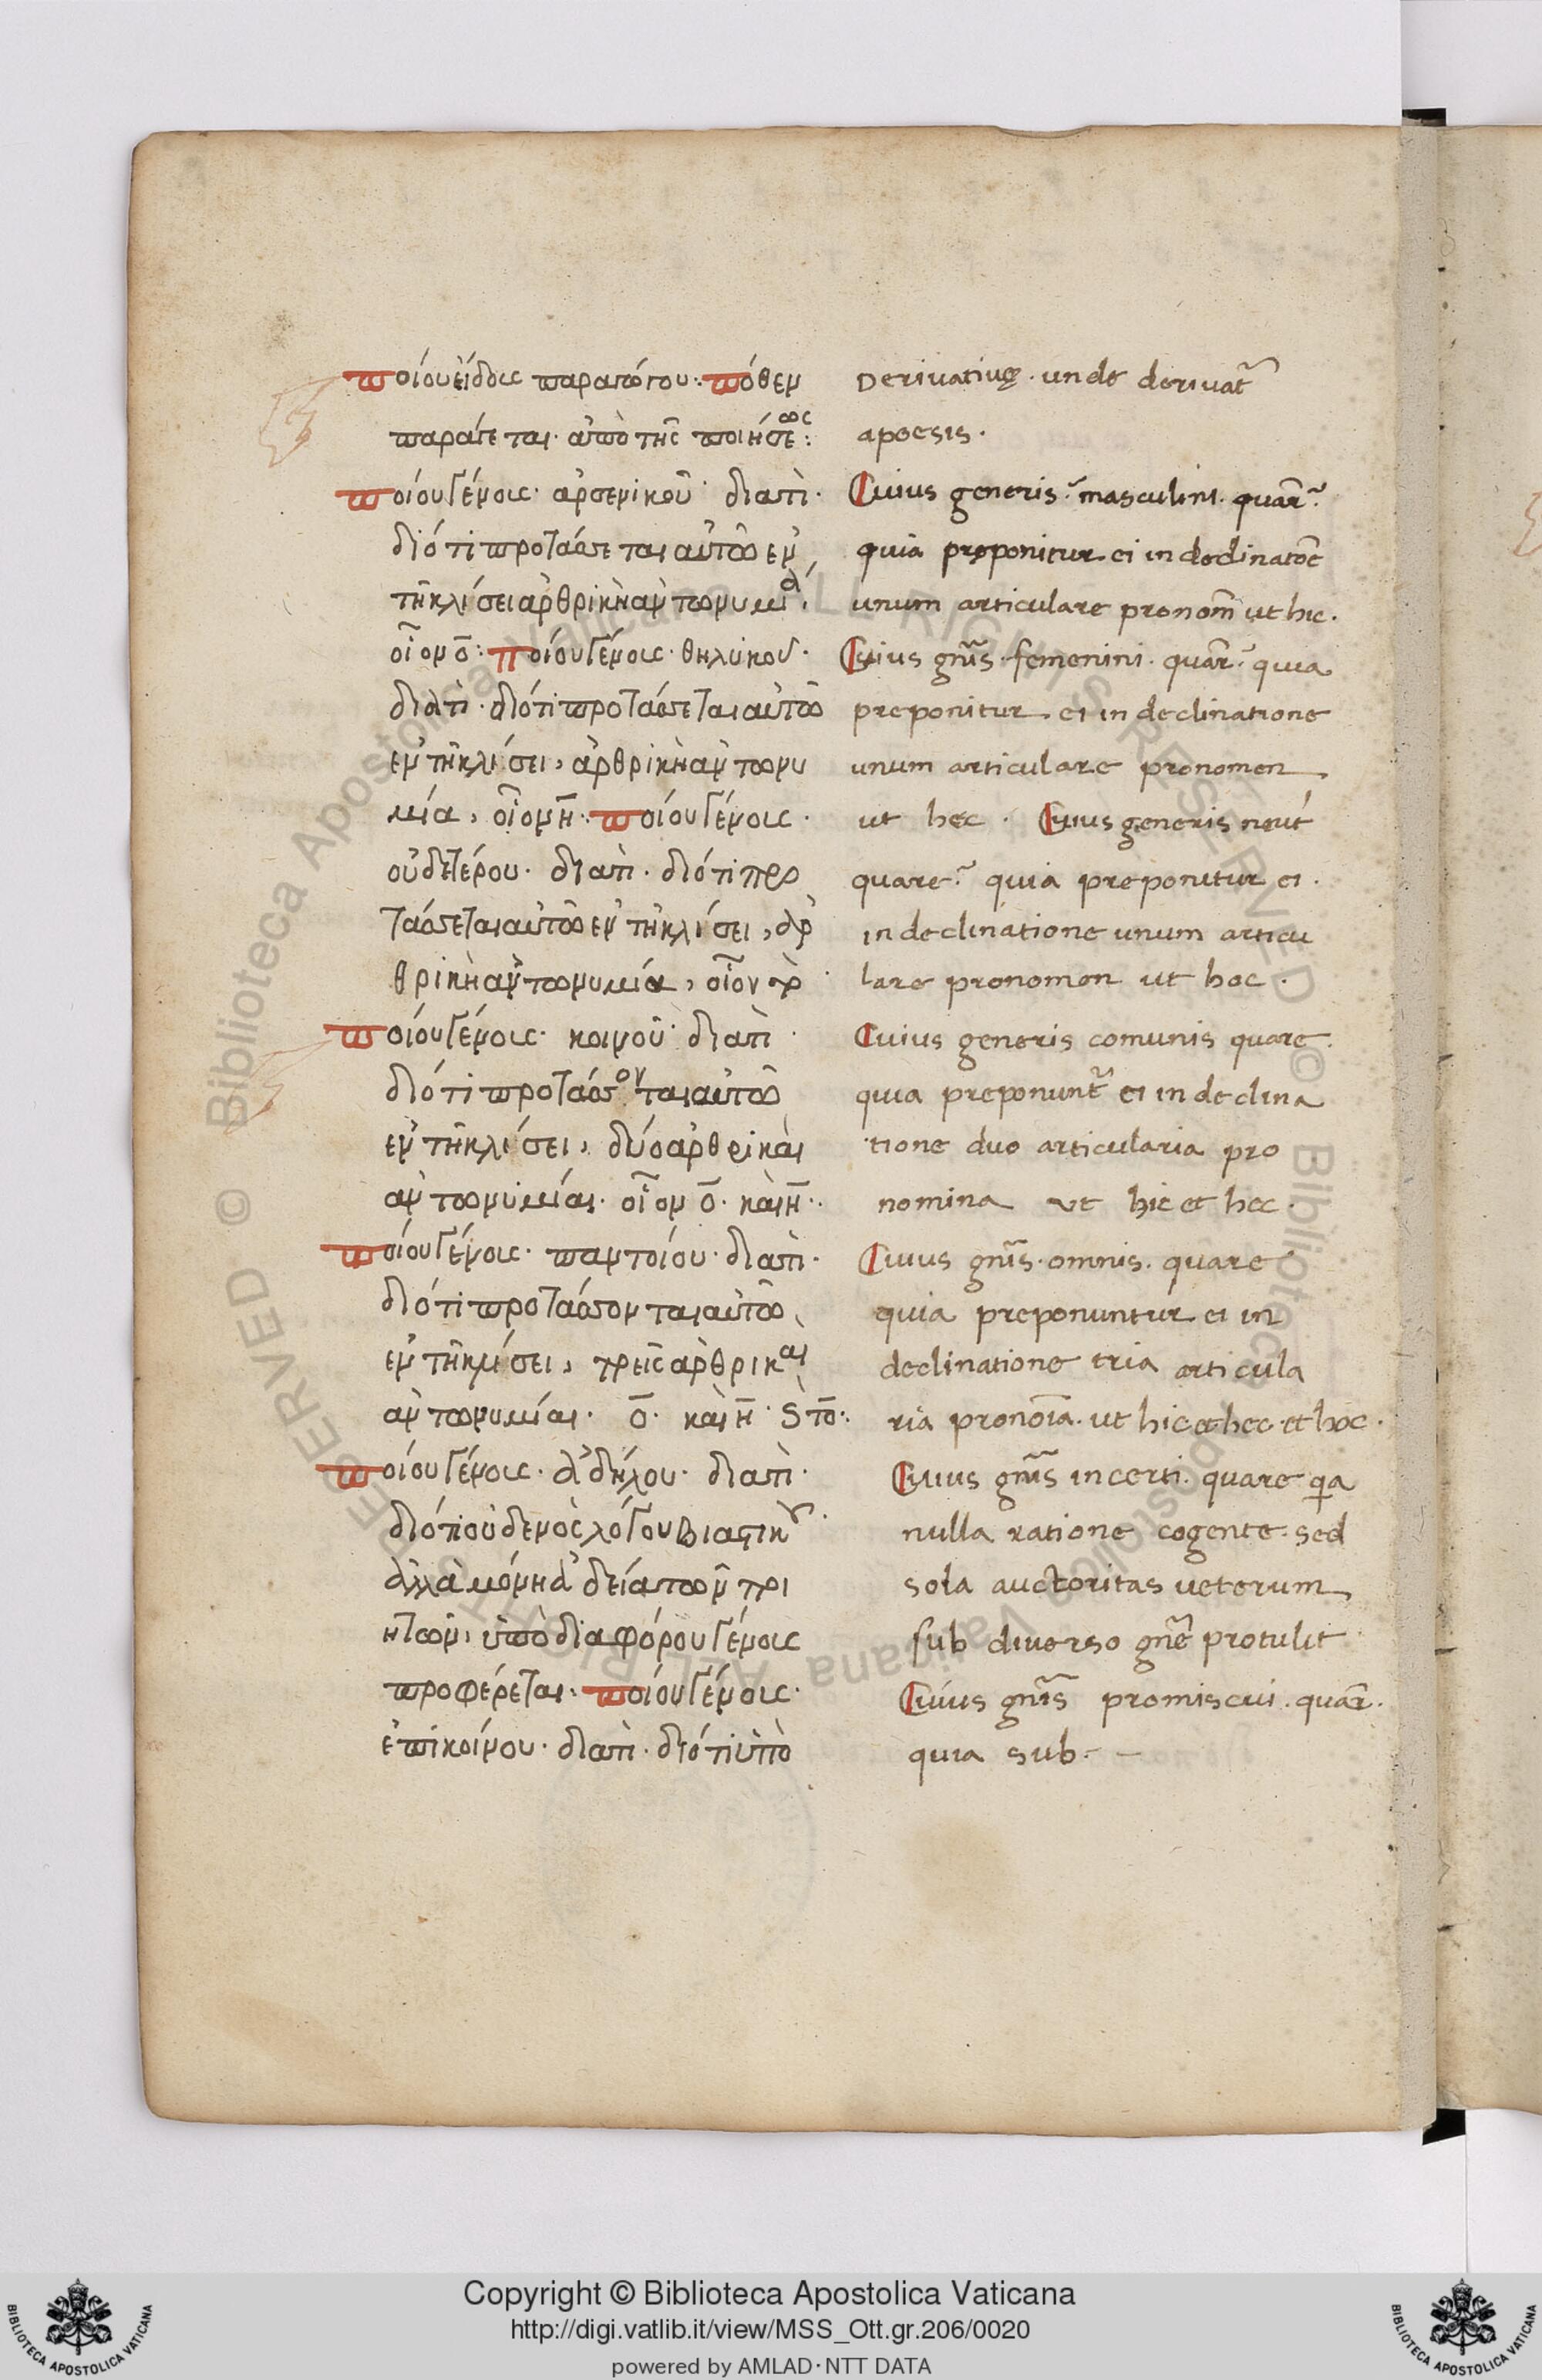 ποίου εἴδους παραγώγου: πόθεν
παράγεται· ἀπὸ τῆς ποιήσεως:
ποίου γένους· ἀρσενικοῦ· διατί·
διότι προτάσσεται αὐτῶ ἐν
τῆ κλίσει ἀρθρικὴ ἀντωνυμία,
οἷον ὁ: ποίου γένους· θηλυκοῦ·
διατί· διότι προτάσσεται αὐτῶ
ἐν τῆ κλίσει, ἀρθρικὴ ἀντωνυ
μία, οἷον ἡ: ποίου γένους·
οὐδετέρου· διατί· διότι προ
τάσσεται αὐτῶ ἐν τῆ κλίσει, ἀρ
θρικὴ ἀντωνυμία, οἷον τὸ·
ποίου γένους· κοινοῦ· διατί·
διότι προτάσσονται αὐτῶ
ἐν τῆ κλίσει, δύο ἀρθρικαὶ
ἀντωνυμίαι· οἷον ὁ· καὶ ἡ:
ποίου γένους· παντοίου· διατί·
διότι προτάσσονται αὐτῶ,
ἐν τῆ κλίσει, τρεῖς ἀρθρικαὶ
ἀντωνυμίαι· ὁ· καὶ ἡ· ϛ τὸ:
ποίου γένους· ἀδήλου· διατί·
διότι οὐδενὸς λόγου βιαστικοῦ·
ἀλλὰ μόνη ἀδεία τῶν ποι
ητῶν, ὑπὸ διαφόρου γένους
προφέρεται· ποίου γένους·
ἐπικοίνου· διατί· διότι ὑπὸ
Derivatiuę · unde deriuat᷑
apoesis·
Cuius generis? masculini· quar̃?
quia preponitur ei in declinatõe
unum articulare pronom̃ ut hic·
Cuius gñis· femenini· quar̃? quia
preponitur ei in declinatione
unum articulare pronomen
ut hec · Cuius generis neut́
quare? quia preponitur ei·
in declinatione unum articu
lare pronomen ut hoc·
Cuius generis comunis quare·
quia preponunt᷑ ei in declina
tione duo articularia pro
nomina ut hic et hec·
Cuius gñis· omnis· quare
quia preponuntur ei in
declinatione tria articula
ria pronoĩa· ut hic et hec et hoc·
Cuius gñis incerti· quare qa
nulla ratione cogente· sed
sola auctoritas ueterum
sub diuerso gñe protulit
Cuius gñis promiscui· quar̃·
quia sub·-
Copyright © Biblioteca Apostolica Vaticana
http://digi.vatlib.it/view/MSS_Ott.gr.206/0020
powered by AMLAD·NTT DATA
BIBLIOTECA APOSTOLICA VATICANA
BIBLIOTECA APOSTOLICA VATICANA
© Biblioteca Apostolica Vaticana ALL RIGHTS RESERVED
© Biblioteca Apostolica Vaticana ALL RIGHTS RESERVED